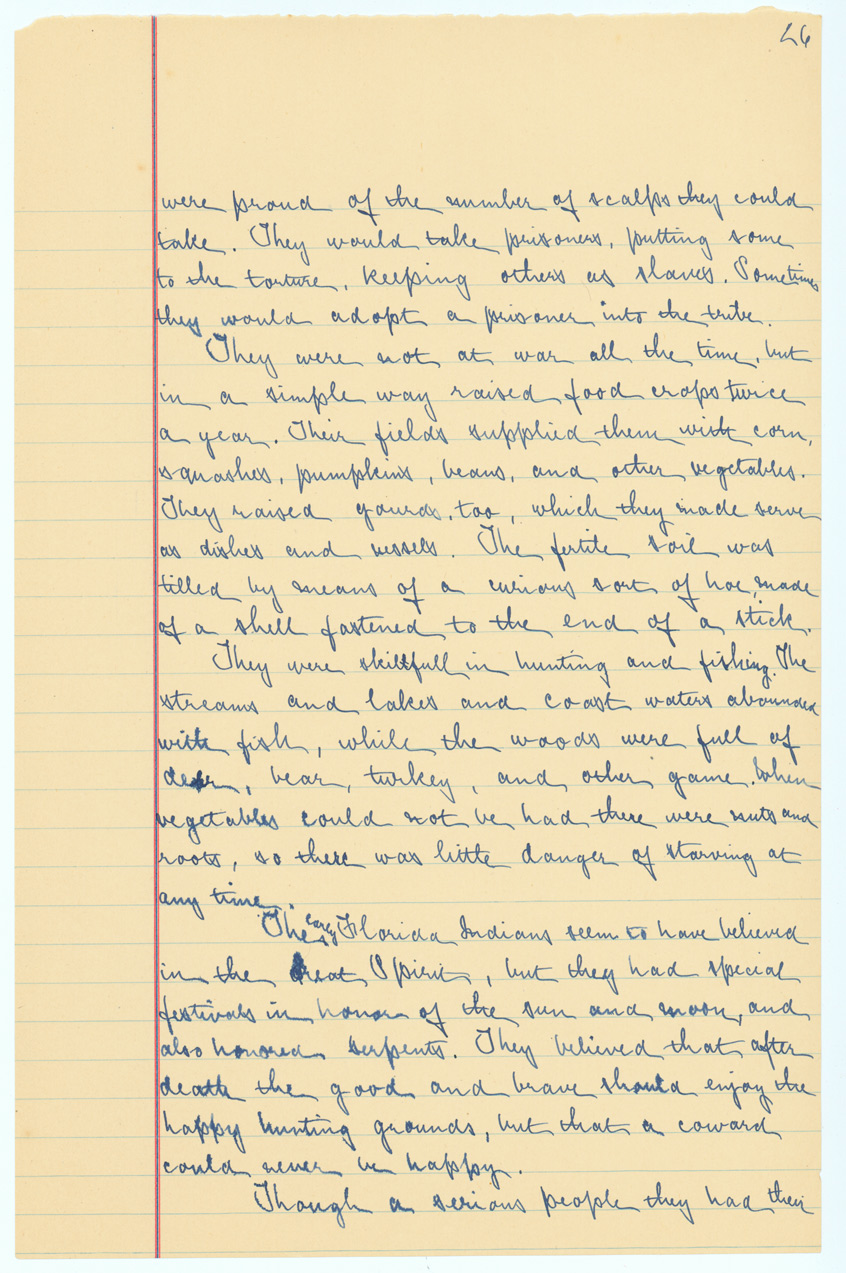 26
were proud of the number of scalps they could
take. They would take prisoners, putting some
to the torture, keeping others as slaves. Sometimes
they would adopt a prisoner into the tribe.
They were not at war all the time, but
in a simple way raised food crops twice
a year. Their fields supplied them with corn,
squashes, pumpkins, beans, and other vegetables.
They raised gourds, too, which they made serve
as dishes and vessels. The fertile soil was
tilled by means of a curious sort of hoe, made
of a shell fastened to the end of a stick.
They were skillfull in hunting and fishing. The
streams and lakes and coast waters abounded
with fish, while the woods were full of
deer, bear, turkey, and other game. When
vegetables could not be had there were nuts and
roots, so there was little danger of starving at
any time.
The early Florida Indians seem to have believed
in the Great Spirit, but they had special
festivals in honor of the sun and moon, and
also honored serpents. They believed that after
death the good and brave should enjoy the
happy hunting grounds, but that a coward
could never be happy.
Though a serious people they had their